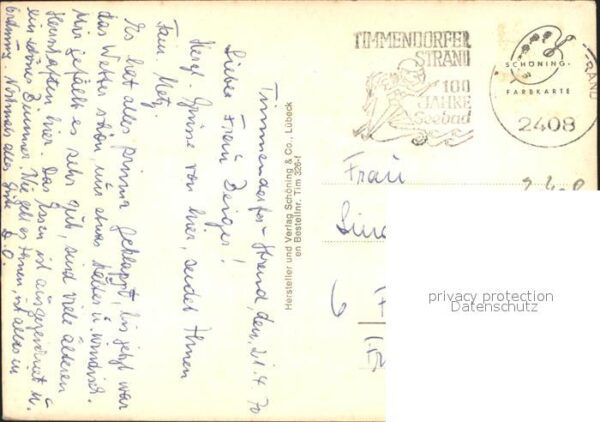 Timmendorfer-Strand, den, 21.4.70
Liebe Frau Berger!
Herzl. Grüsse von hier, sendet Ihnen
Fam. Metz.
Es hat alles prima geklappt, bis jetzt war
das Wetter schön, nur etwas kälter u. windisch.
Mir gefällt es sehr gut, sind viele älteren
Herrschaften hier. Das Essen ist ausgezeichnet u.
ein schönes Zimmer. Wie geht es Ihnen ist alles in
Ordnung. Nochmals alles Gute
Hersteller und Verlag Schöning & Co., Lübeck
en Bestellnr. Tim 326-f
TIMMENDORFER
STRAND
100
JAHRE
Seebad
SCHÖNING
FARBKARTE
STRAND
2408
Frau
6
privacy protection
Datenschutz